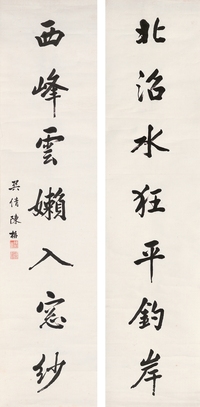 北沼水狂平釣岸
西峰雲嬾入窓紗
吳倩陳格